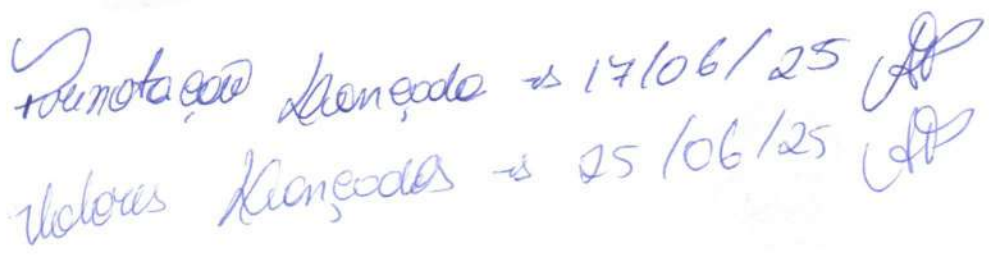 Prenotação Lançada → 17/06/25
Valores Lançados → 25/06/25